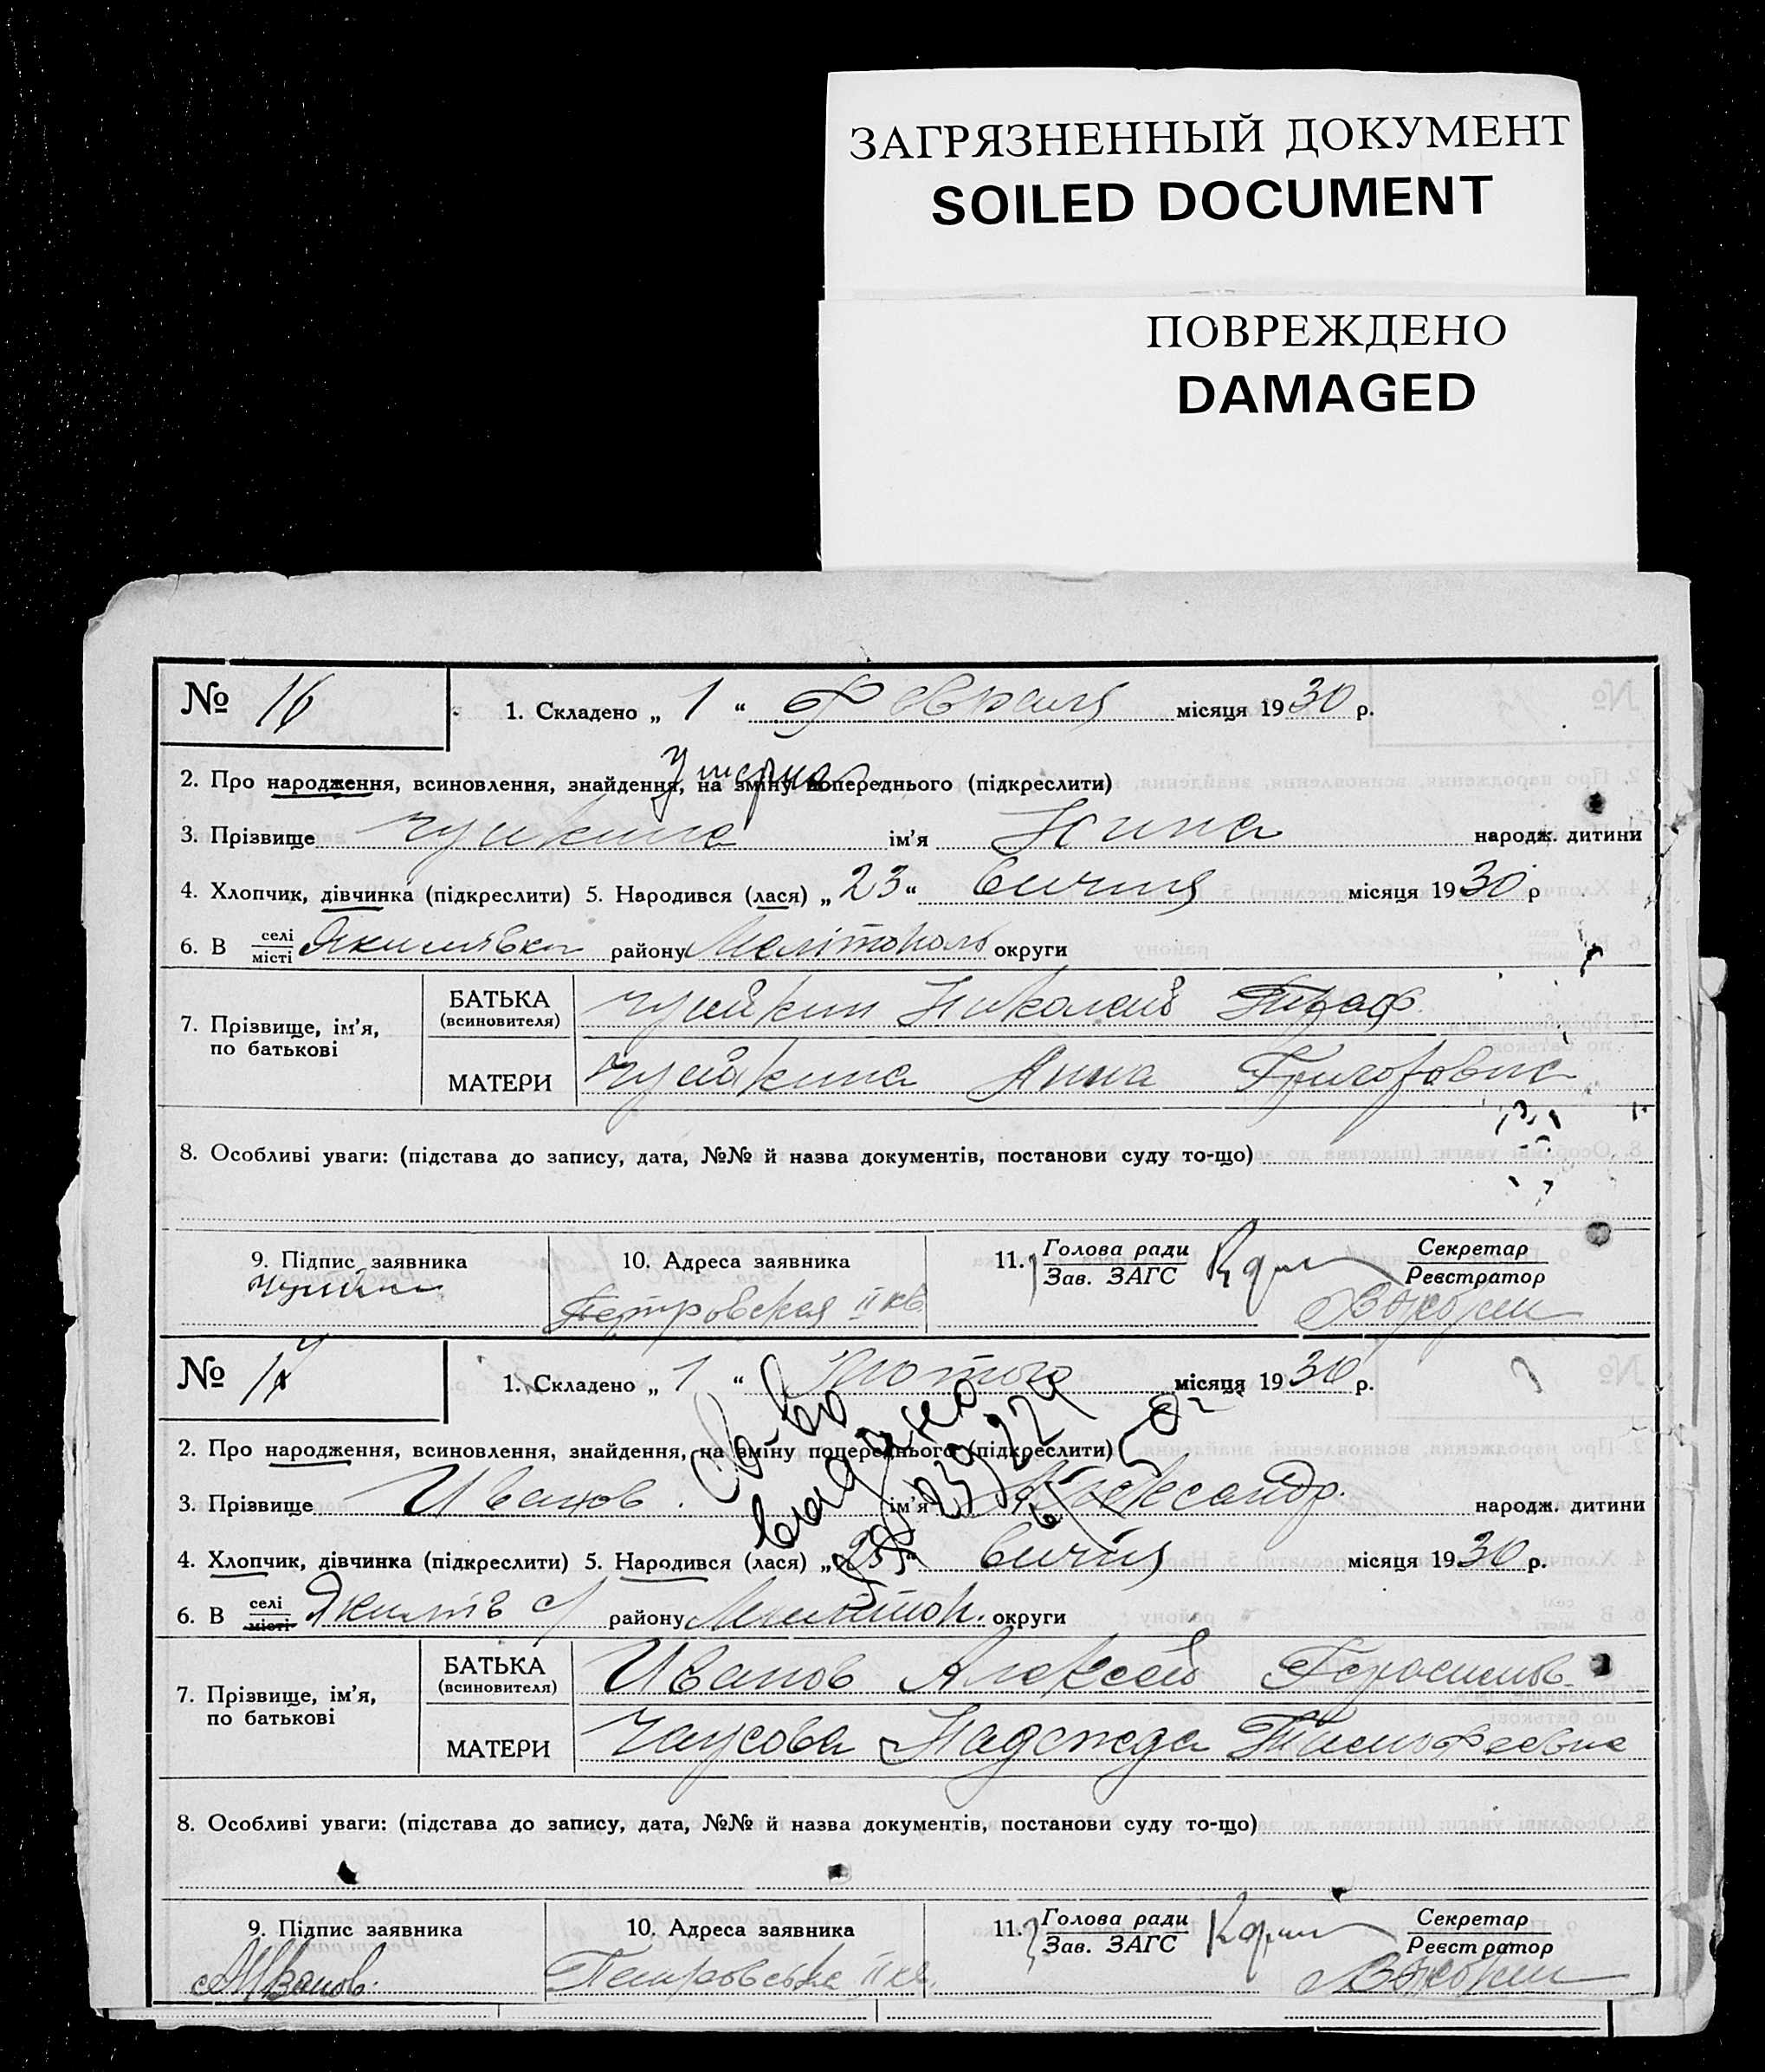 ЗАГРЯЗНЕННЫЙ ДОКУМЕНТ
SOILED DOCUMENT
ПОВРЕЖДЕНО
DAMAGED
№ 16 1. Складено „ 1 “ Февраля місяця 1930 р.
2. Про народження, всиновлення, знайдення, на зміну попереднього (підкреслити)
3. Прізвище ім'я Нина народж. дитини
4. Хлопчик, дівчинка (підкреслити) 5. Народився (лася) „ 23 “ Січня місяця 1930 р
6. В селі місті Якимівка району Мелітополь округи
7. Прізвище, ім'я, по батькові
БАТЬКА (всиновителя) Николай
МАТЕРИ Анна Григоровна
8. Особливі уваги: (підстава до запису, дата, №№ й назва документів, постанови суду то-що)
9. Підпис заявника 10. Адреса заявника 11. Голова ради Зав. ЗАГС Секретар Реєстратор
Петровская II кв.
№ 17 1. Складено „ 1 “ Лютого місяця 1930 р.
2. Про народження, всиновлення, знайдення, на зміну попереднього (підкреслити)
Св-во выдано
3. Прізвище Иванов ім'я Александр. народж. дитини
4. Хлопчик, дівчинка (підкреслити) 5. Народився (лася) „ 25 “ Січня місяця 1930 р.
6. В селі місті району округи
7. Прізвище, ім'я, по батькові
БАТЬКА (всиновителя) Иванов Алексей Герасимов
МАТЕРИ Чаусова Надежда Тимофеевна
8. Особливі уваги: (підстава до запису, дата, №№ й назва документів, постанови суду то-що)
9. Підпис заявника 10. Адреса заявника 11. Голова ради Зав. ЗАГС Секретар Реєстратор
АИванов. Петровська II кв.